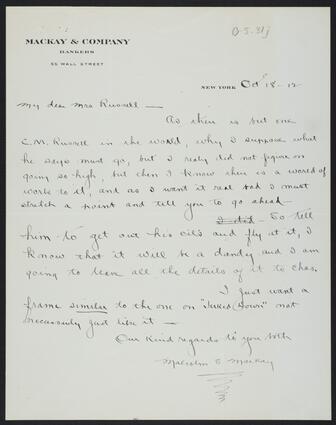 D.5.31j
MACKAY & COMPANY
BANKERS
55 WALL STREET
NEW YORK Oct 18-12
My dear Mrs Russell —
As there is but one
C.M. Russell in the world, why I suppose what
he says must go, but I really did not figure on
going so high, but then I know there is a world of
work to it, and as I want it real bad I must
stretch a point and tell you to go ahead
So tell
him to get out his oils and fly at it, I
know that it will be a dandy and I am
going to leave all the details of it to Chas.
I just want a
frame similar to the one on "Jerked Down" not
necessarily just like it —
Our kind regards to you both
Malcolm S Mackay